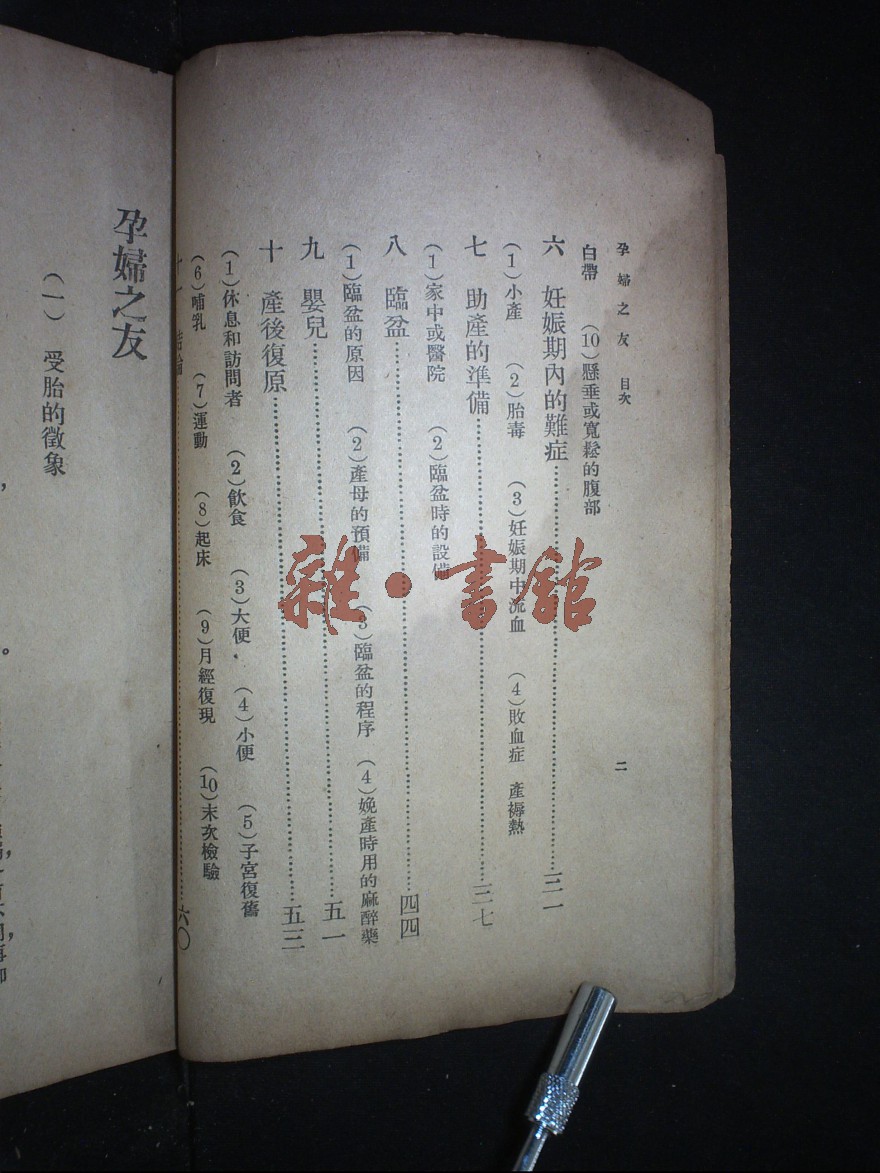 孕婦之友 目次 二
白帶 （10）懸垂或寬鬆的腹部
六 妊娠期內的難症……三一
（1）小產 （2）胎毒 （3）妊娠期中流血 （4）敗血症 產褥熱
七 助產的準備……三七
（1）家中或醫院 （2）臨盆時的設備
八 臨盆……四四
（1）臨盆的原因 （2）產母的預備 （3）臨盆的程序 （4）娩產時用的麻醉藥
九 嬰兒……五一
十 產後復原……五三
（1）休息和訪問者 （2）飲食 （3）大便 （4）小便 （5）子宮復舊
（6）哺乳 （7）運動 （8）起床 （9）月經復現 （10）末次檢驗
十一 結論……六〇
孕婦之友
（一） 受胎的徵象
雜·書館